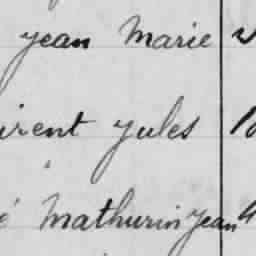 Jean Marie
irent Jules
é Mathurin Jean